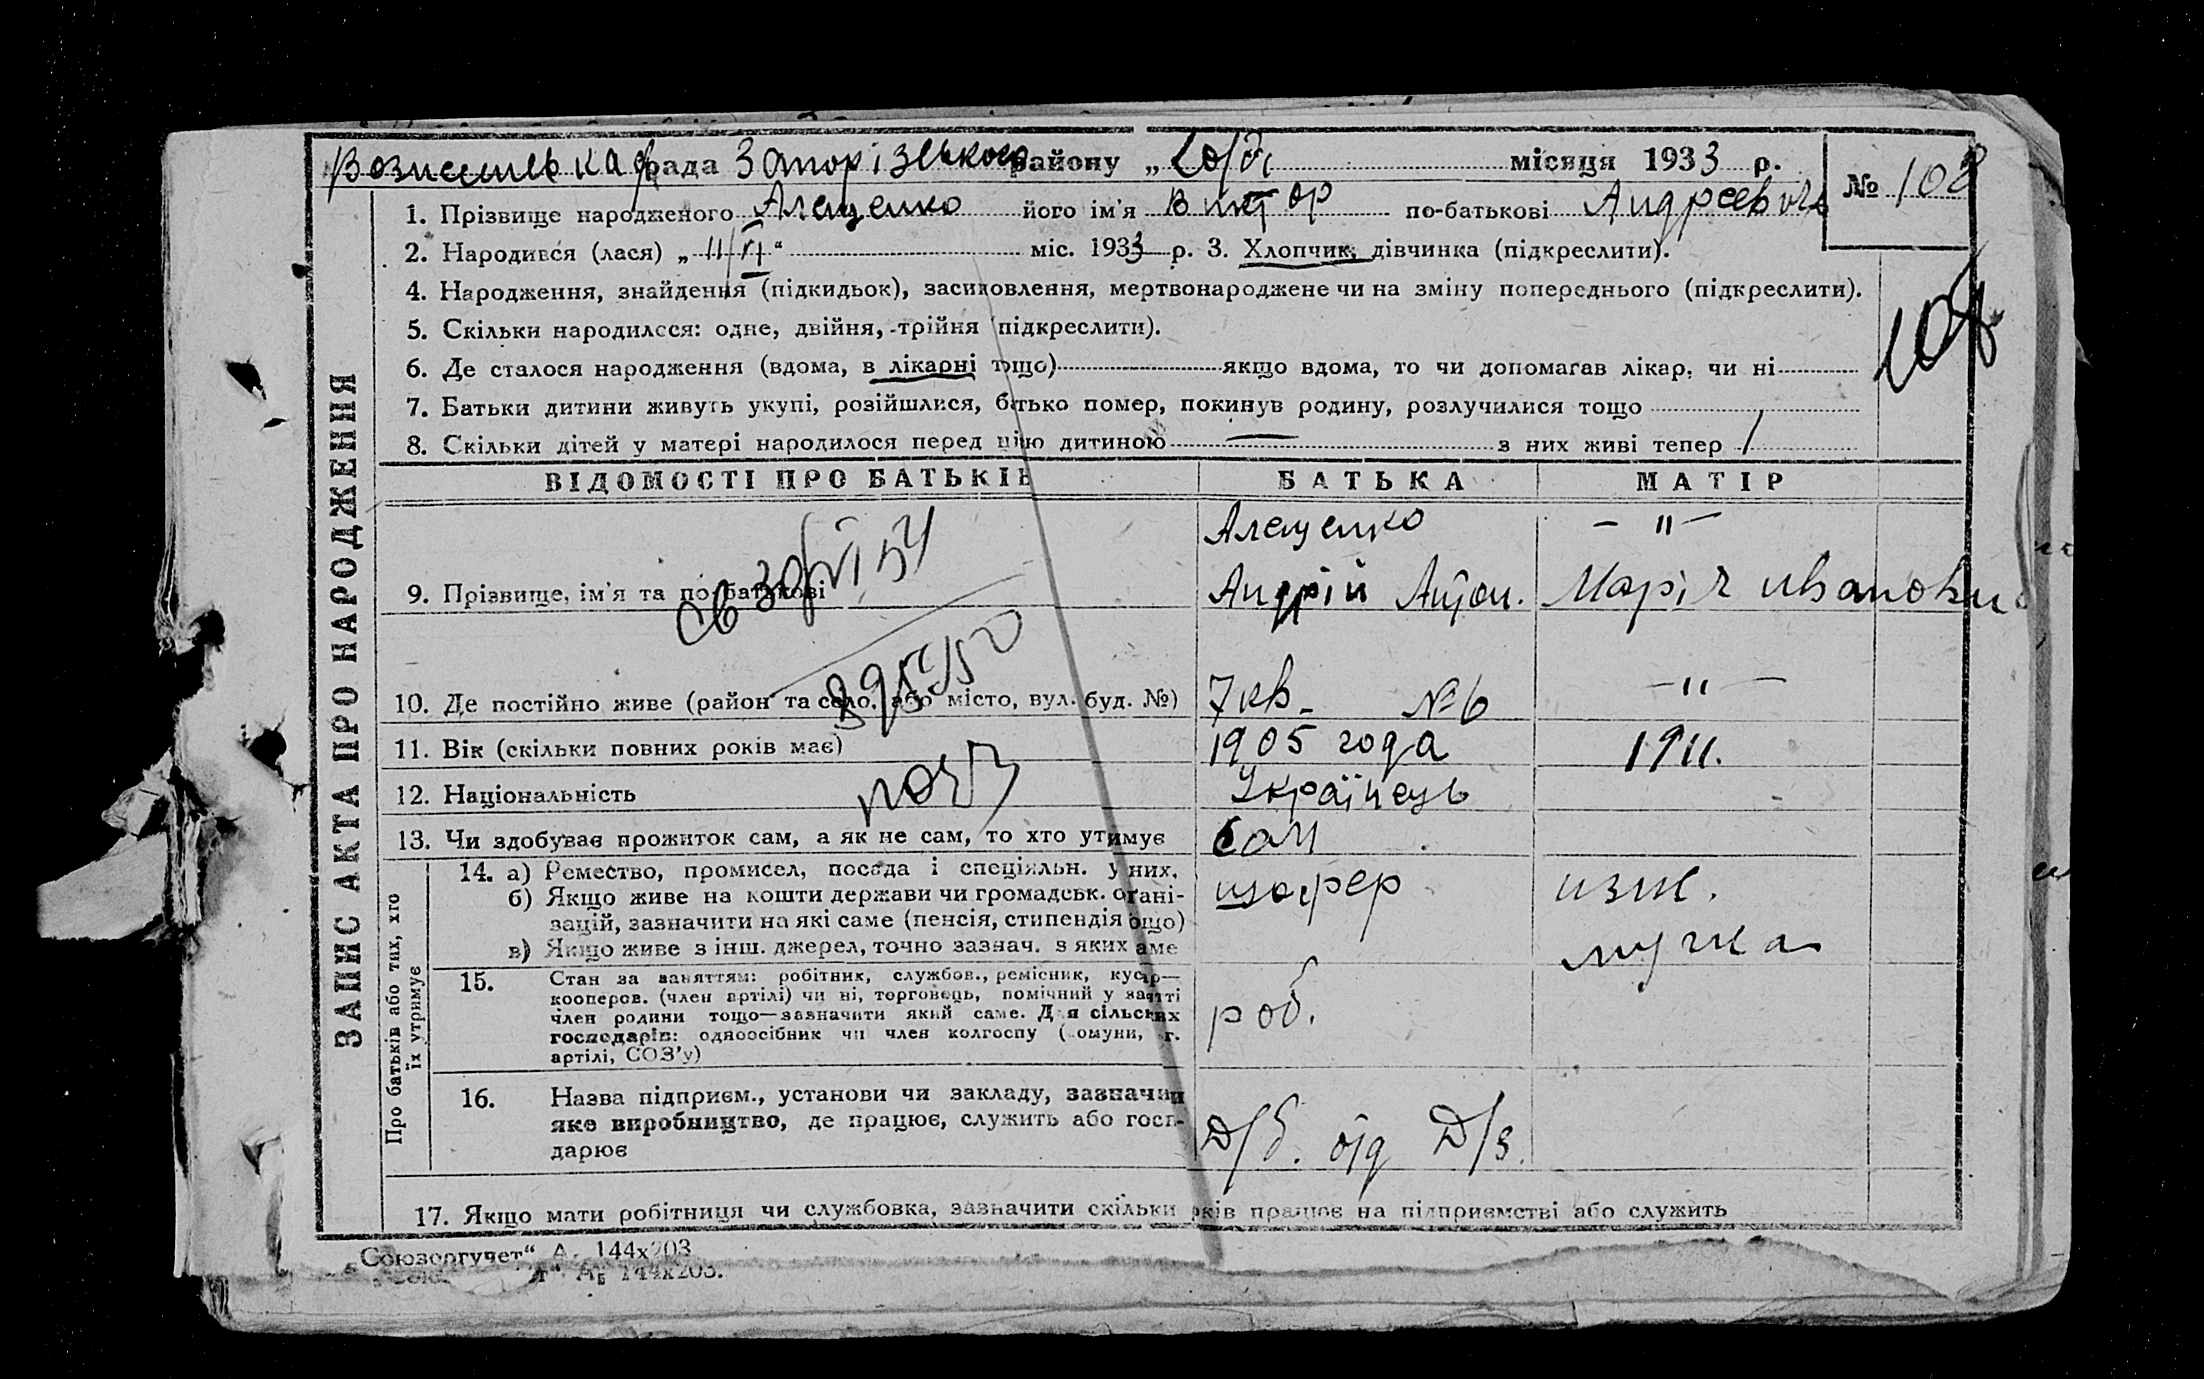 Вознесенська рада Запорізького району „ місяця 1933 р.
№ 108
1. Прізвище народженого Алещенко його ім'я Виктор по-батькові Андреевич
2. Народився (лася) „ 11/VI “ міс. 1933 р. 3. Хлопчик, дівчинка (підкреслити).
4. Народження, знайдення (підкидьок), засиновлення, мертвонароджене чи на зміну попереднього (підкреслити).
108
5. Скільки народилсся: одне, двійня, трійня (підкреслити).
6. Де сталося народження (вдома, в лікарні тощо) якщо вдома, то чи допомагав лікар, чи ні
7. Батьки дитини живуть укупі, розійшлися, батько помер, покинув родину, розлучилися тощо
8. Скільки дітей у матері народилося перед цією дитиною — з них живі тепер 1
ЗАПИС АКТА ПРО НАРОДЖЕННЯ
ВІДОМОСТІ ПРО БАТЬКІВ БАТЬКА МАТІР
Алещенко — " —
9. Прізвище, ім'я та по батькові Андрій Антон. Марія
10. Де постійно живе (район та село, або місто, вул. буд. №) 7 кв. №6 — " —
11. Вік (скільки повних років має) 1905 года 1911.
12. Національність Українець
13. Чи здобуває прожиток сам, а як не сам, то хто утимує Сам
Про батьків або тих, хто їх утримує
14. а) Ремество, промисел, посада і спеціяльн. у них. шофер изж.
б) Якщо живе на кошти держави чи громадськ. огані-
зацій, зазначити на які саме (пенсія, стипендія ощо)
в) Якщо живе з інш. джерел, точно зазнач. з яких аме мужа
15. Стан за заняттям: робітник, службов., ремісник, кусар—
кооперов. (член артілі) чи ні, торговець, помічний у занятті
член родини тощо—зазначити який саме. Для сільських роб.
господарів: одноосібник чи член колгоспу (комуни, г.
артілі, СОЗ'у)
16. Назва підприєм., установи чи закладу, зазначии
яке виробництво, де працює, служить або госп- Д/б. від Д/з.
дарює
17. Якщо мати робітниця чи службовка, зазначити скільки років працює на підприємстві або служить
„Союзоргучет“ А₅ 144x203
144x203.